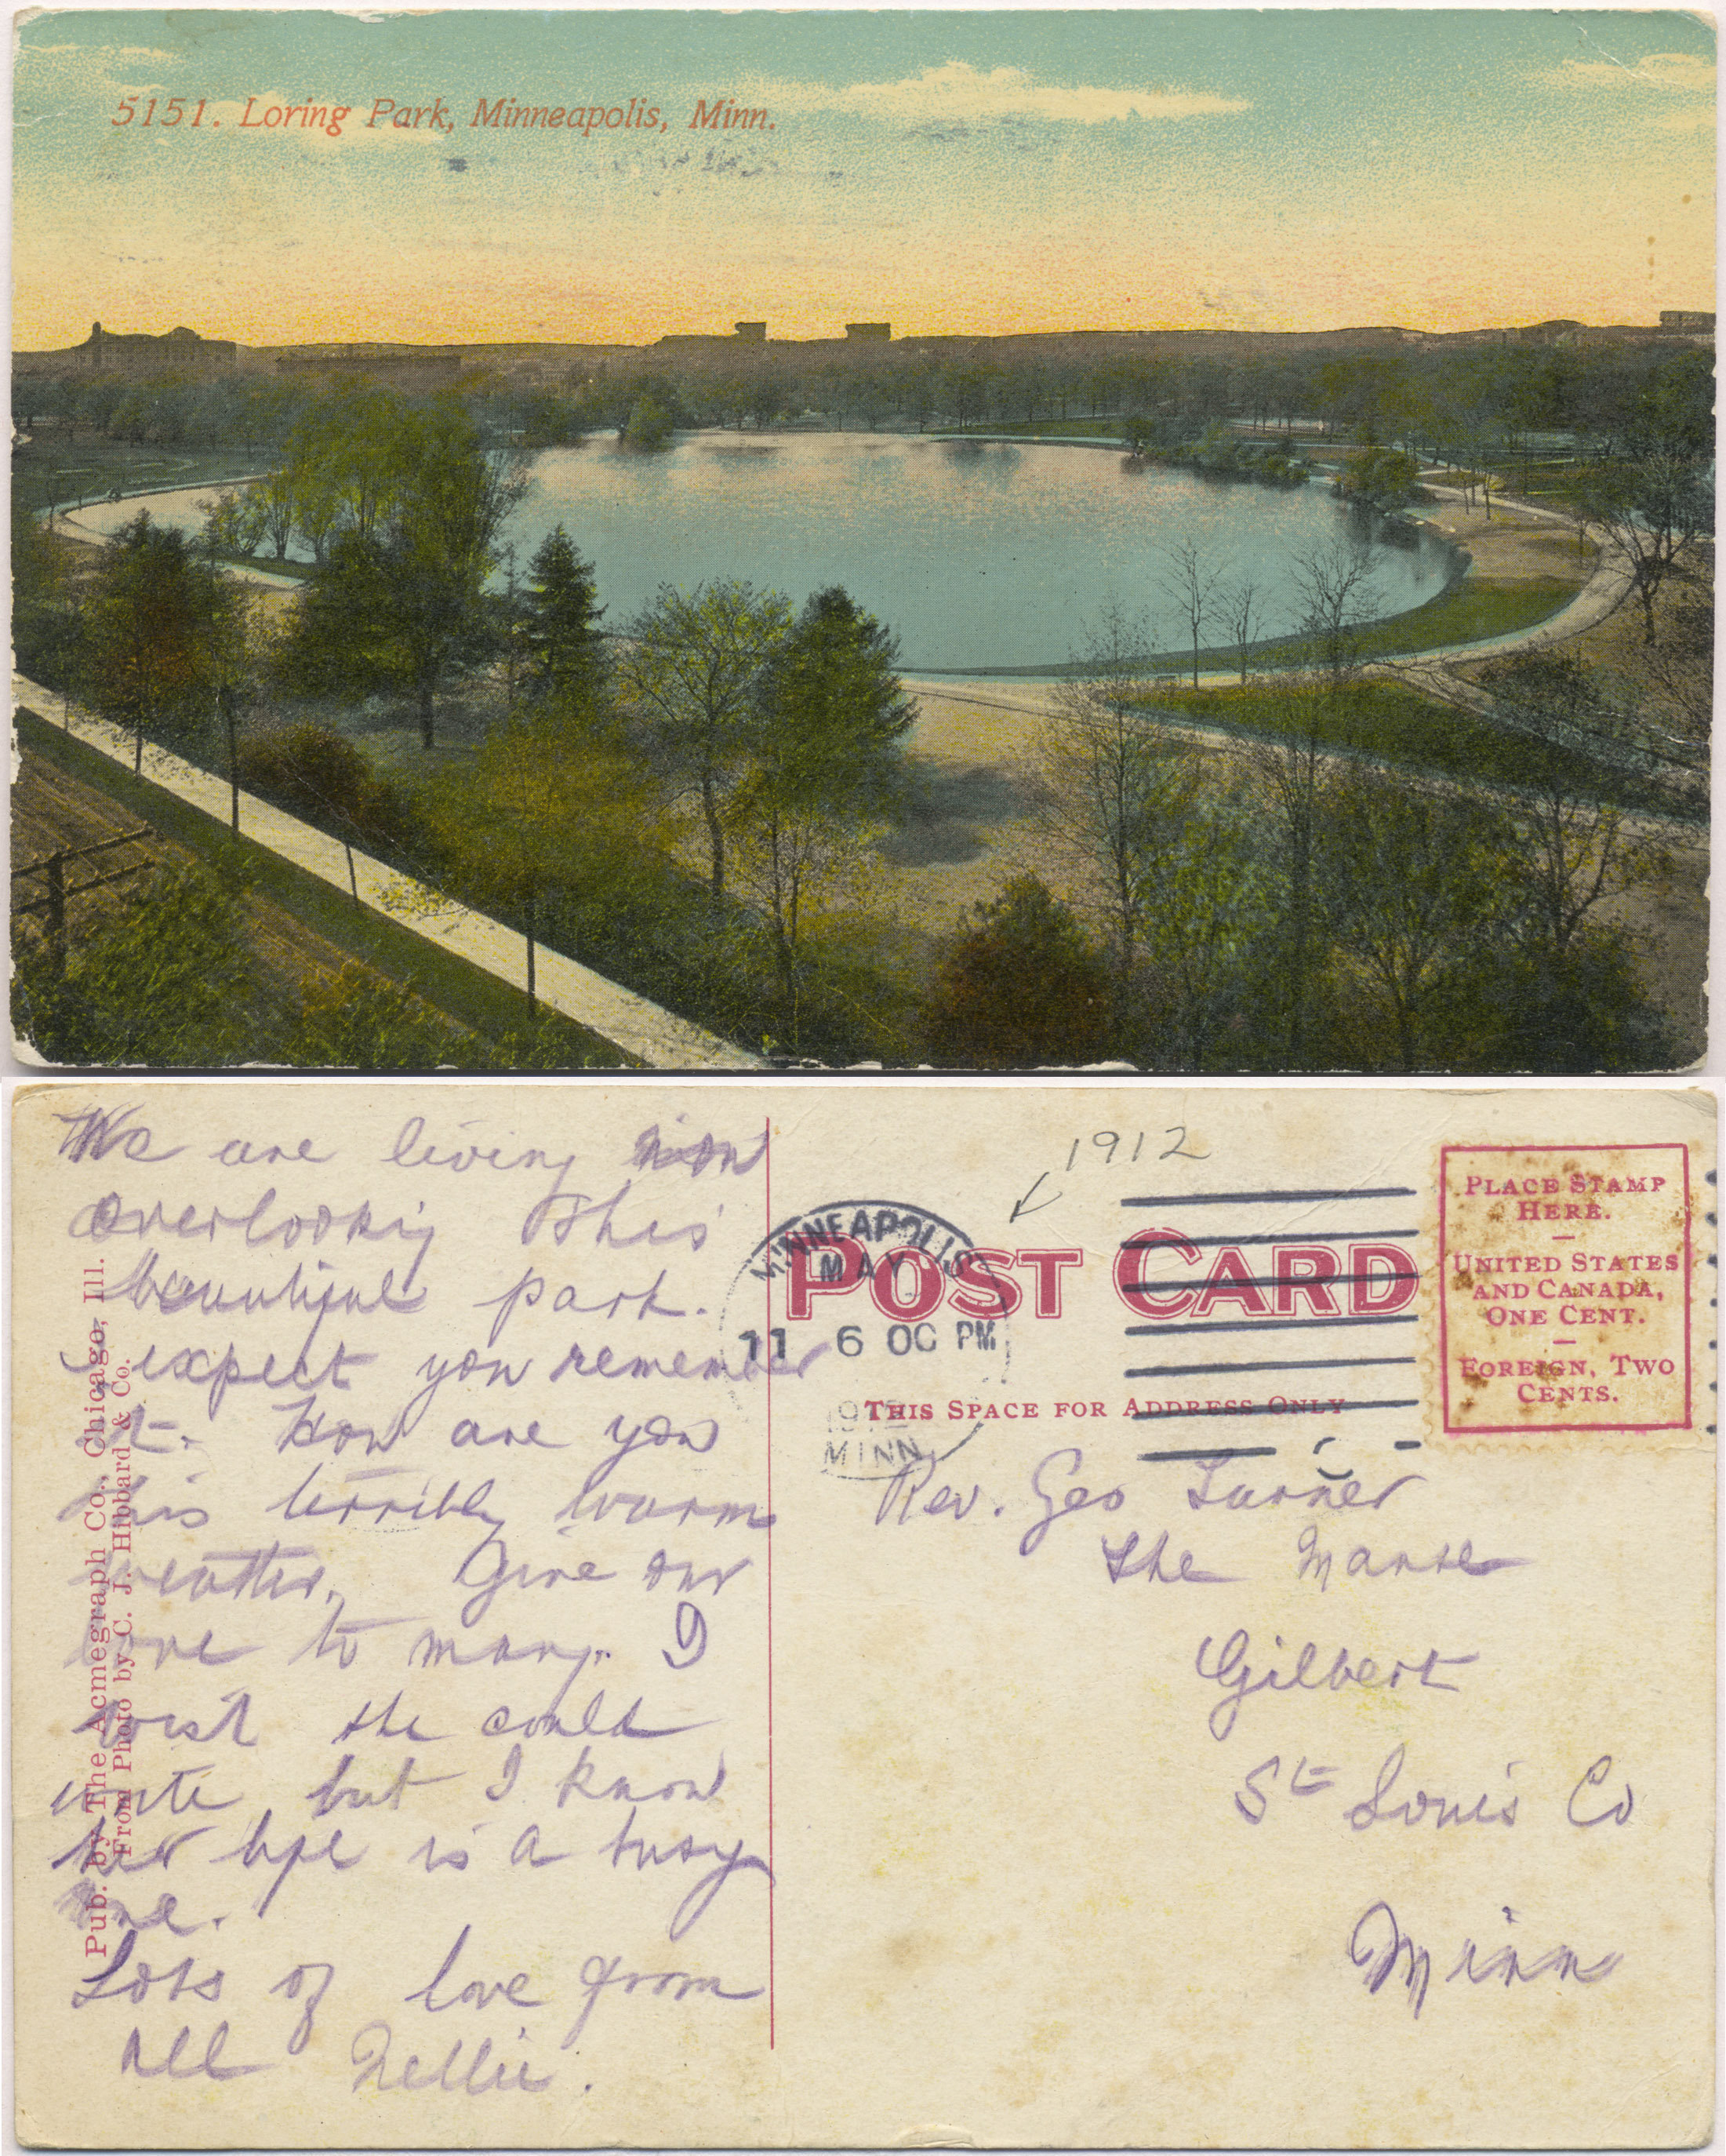 5151. Loring Park, Minneapolis, Minn.
We are living now
overlooking this
beautiful park.
I expect you remember
it. How are you
this terribly warm
weather. Give our
love to mary. I
wish she could
write but I know
her life is a busy
one.
Lots of love from
all Nellie.
Pub. by The Acmegraph Co., Chicago, Ill.
From Photo by C. J. Hibbard & Co.
1912
MINNEAPOLIS
MAY
11 6 00 PM
191
MINN.
POST CARD
THIS SPACE FOR ADDRESS ONLY
PLACE STAMP
HERE.
UNITED STATES
AND CANADA,
ONE CENT.
FOREIGN, TWO
CENTS.
Rev. Geo Turner
The Manse
Gilbert
St Louis Co
Minn